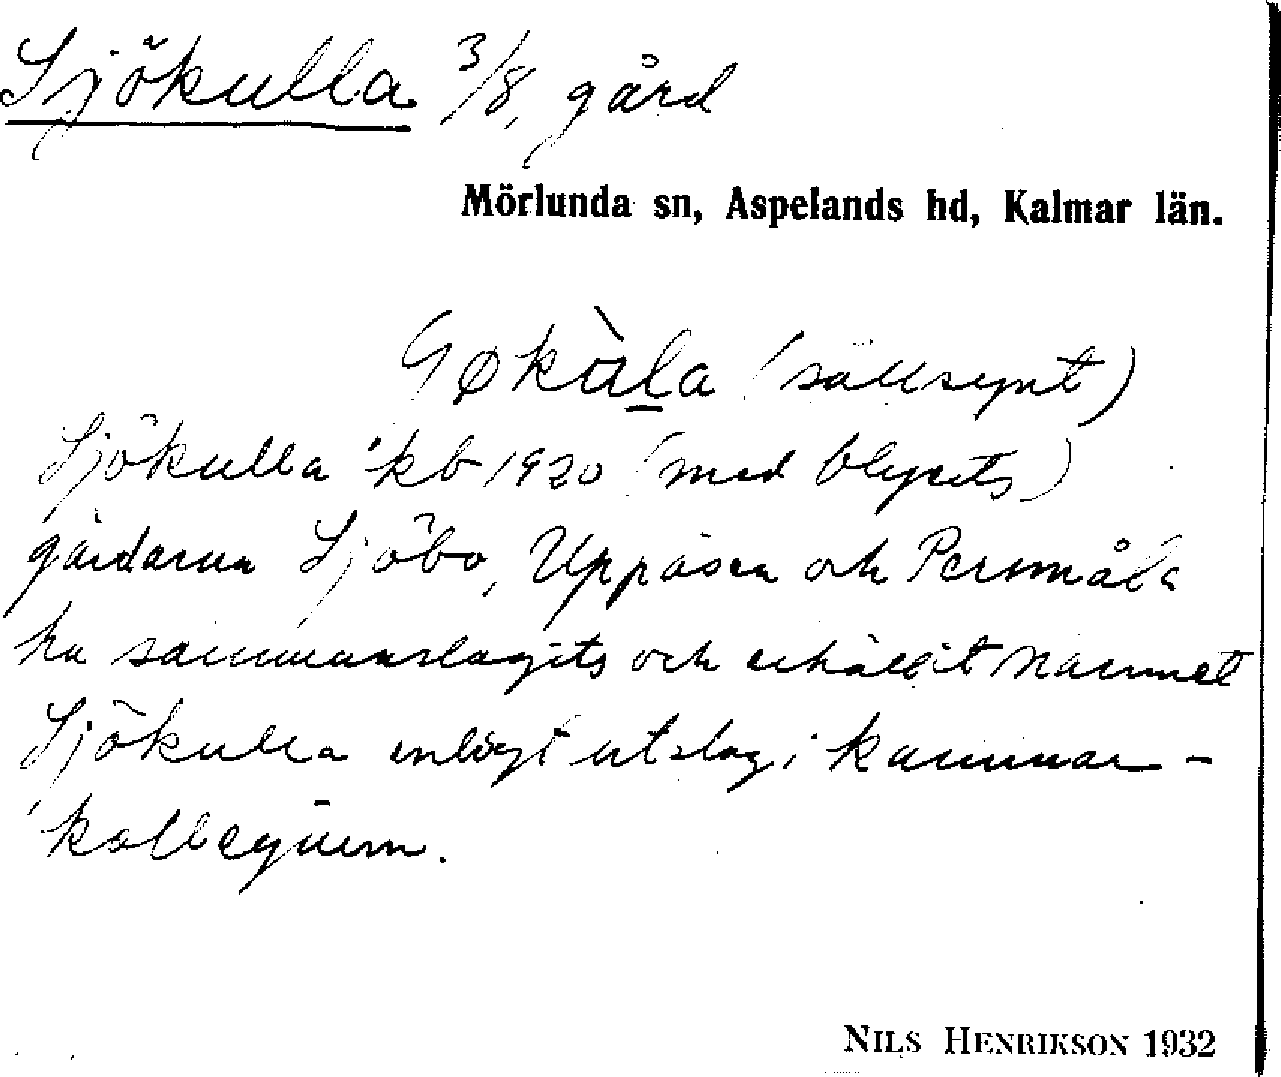 Sjökulla 3/8, gård
Mörlunda sn, Aspelands hd, Kalmar län.
(sällsynt)
Sjökulla kb 1920 (med blyerts)
gårdarna Sjöbo, Uppåsen och Persmåla
ha sammanslagits och erhållit namnet
Sjökulla enligt utslag i kammar-
kollegium.
NILS HENRIKSON 1932